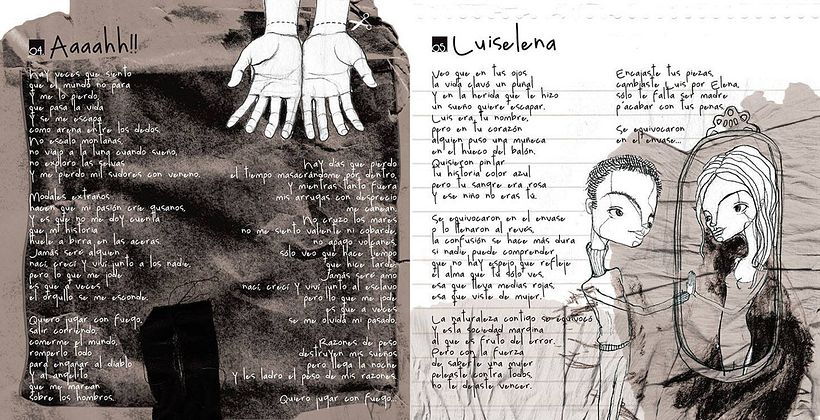 04 Aaaahh!!
Hay veces que siento
que el mundo no para
y me lo pierdo,
que pasa la vida
y se me escapa
como arena entre los dedos.
No escalo montañas,
no viajo a la luna cuando sueño,
no exploro las selvas
y me pierdo mil sudores con veneno.
Modales extraños
hacen que mi pasión críe gusanos,
y es que no me doy cuenta
que mi historia
huele a birra en las aceras.
Jamás seré alguien
nací, crecí y viví junto a los nadie,
pero lo que me jode
es que a veces
el orgullo se me esconde.
Quiero jugar con fuego,
salir corriendo,
comerme el mundo,
romperlo todo
para engañar al diablo
y al angelito
que me marean
sobre los hombros.
Hay días que pierdo
el tiempo masacrándome por dentro,
y mientras tanto fuera
mis arrugas con desprecio
me delatan.
No cruzo los mares
no me siento valiente ni cobarde,
no apago volcanes,
sólo veo que hace tiempo
que hice tarde.
Jamás seré amo
nací, crecí y viví junto al esclavo
pero lo que me jode
es que a veces
se me olvida mi pasado.
Razones de peso
destruyen mis sueños
pero llega la noche
y les ladro el peso de mis razones.
Quiero jugar con fuego...
05 Luiselena
Veo que en tus ojos
la vida clavó un puñal
y en la herida que te hizo
un sueño quiere escapar.
Luis era tu nombre,
pero en tu corazón
alguien puso una muñeca
en el hueco del balón.
Quisieron pintar
tu historia color azul
pero tu sangre era rosa
y ese niño no eras tú.
Se equivocaron en el envase
o lo llenaron al revés,
la confusión se hace más dura
si nadie puede comprender
que no hay espejo que refleje
el alma que tú sólo ves,
esa que lleva medias rojas,
esa que viste de mujer.
La naturaleza contigo se equivocó
y esta sociedad margina
al que es fruto del error.
Pero con la fuerza
de saberte una mujer
peleaste contra todos,
no te dejaste vencer.
Encajaste tus piezas,
cambiaste Luis por Elena,
sólo te falta ser madre
p'acabar con tus penas.
Se equivocaron
en el envase...